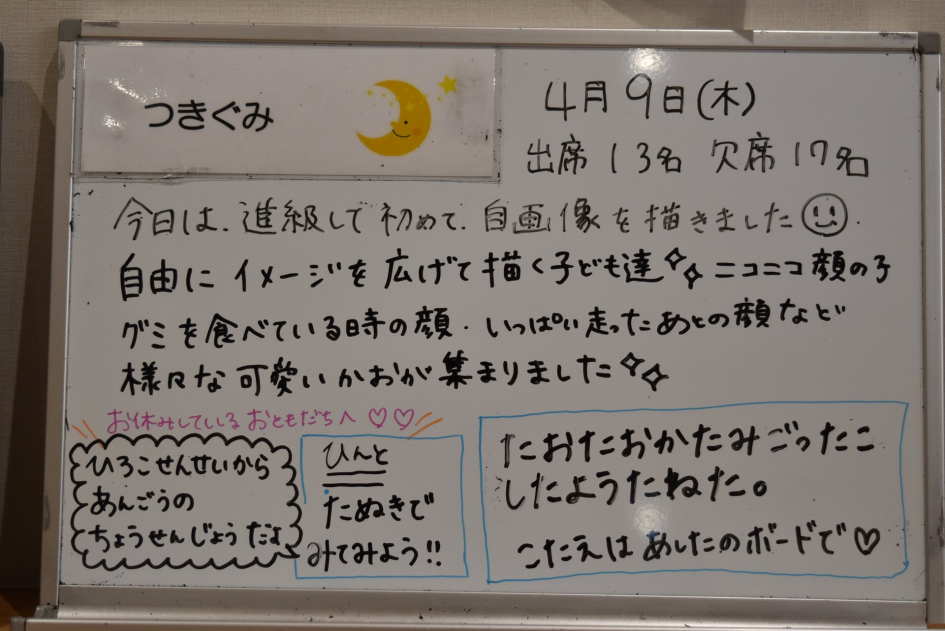 つきぐみ
4月9日(木)
出席 13名 欠席 17名
今日は、進級して初めて、自画像を描きました
自由にイメージを広げて描く子ども達 ニコニコ顔の子
グミを食べている時の顔・いっぱい走ったあとの顔など
様々な可愛いかおが集まりました
お休みしているおともだちへ♡♡
ひろこせんせいから
あんごうの
ちょうせんじょうだよ
ひんと
たぬきで
みてみよう!!
たおたおかたみごったこ
したようたねた。
こたえはあしたのボードで♡